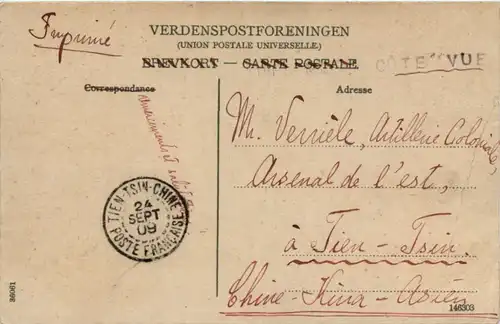 Imprimé
VERDENSPOSTFORENINGEN
(UNION POSTALE UNIVERSELLE.)
BREVKORT — CARTE POSTALE.
COTE VUE
Correspondance
Adresse
M. Verrièle, Artillerie Coloniale,
Arsenal de l'est,
à Tien-Tsin.
Chine-Kina-Asien
TIEN-TSIN-CHINE
24
SEPT
09
POSTE FRANÇAISE
86061
146303